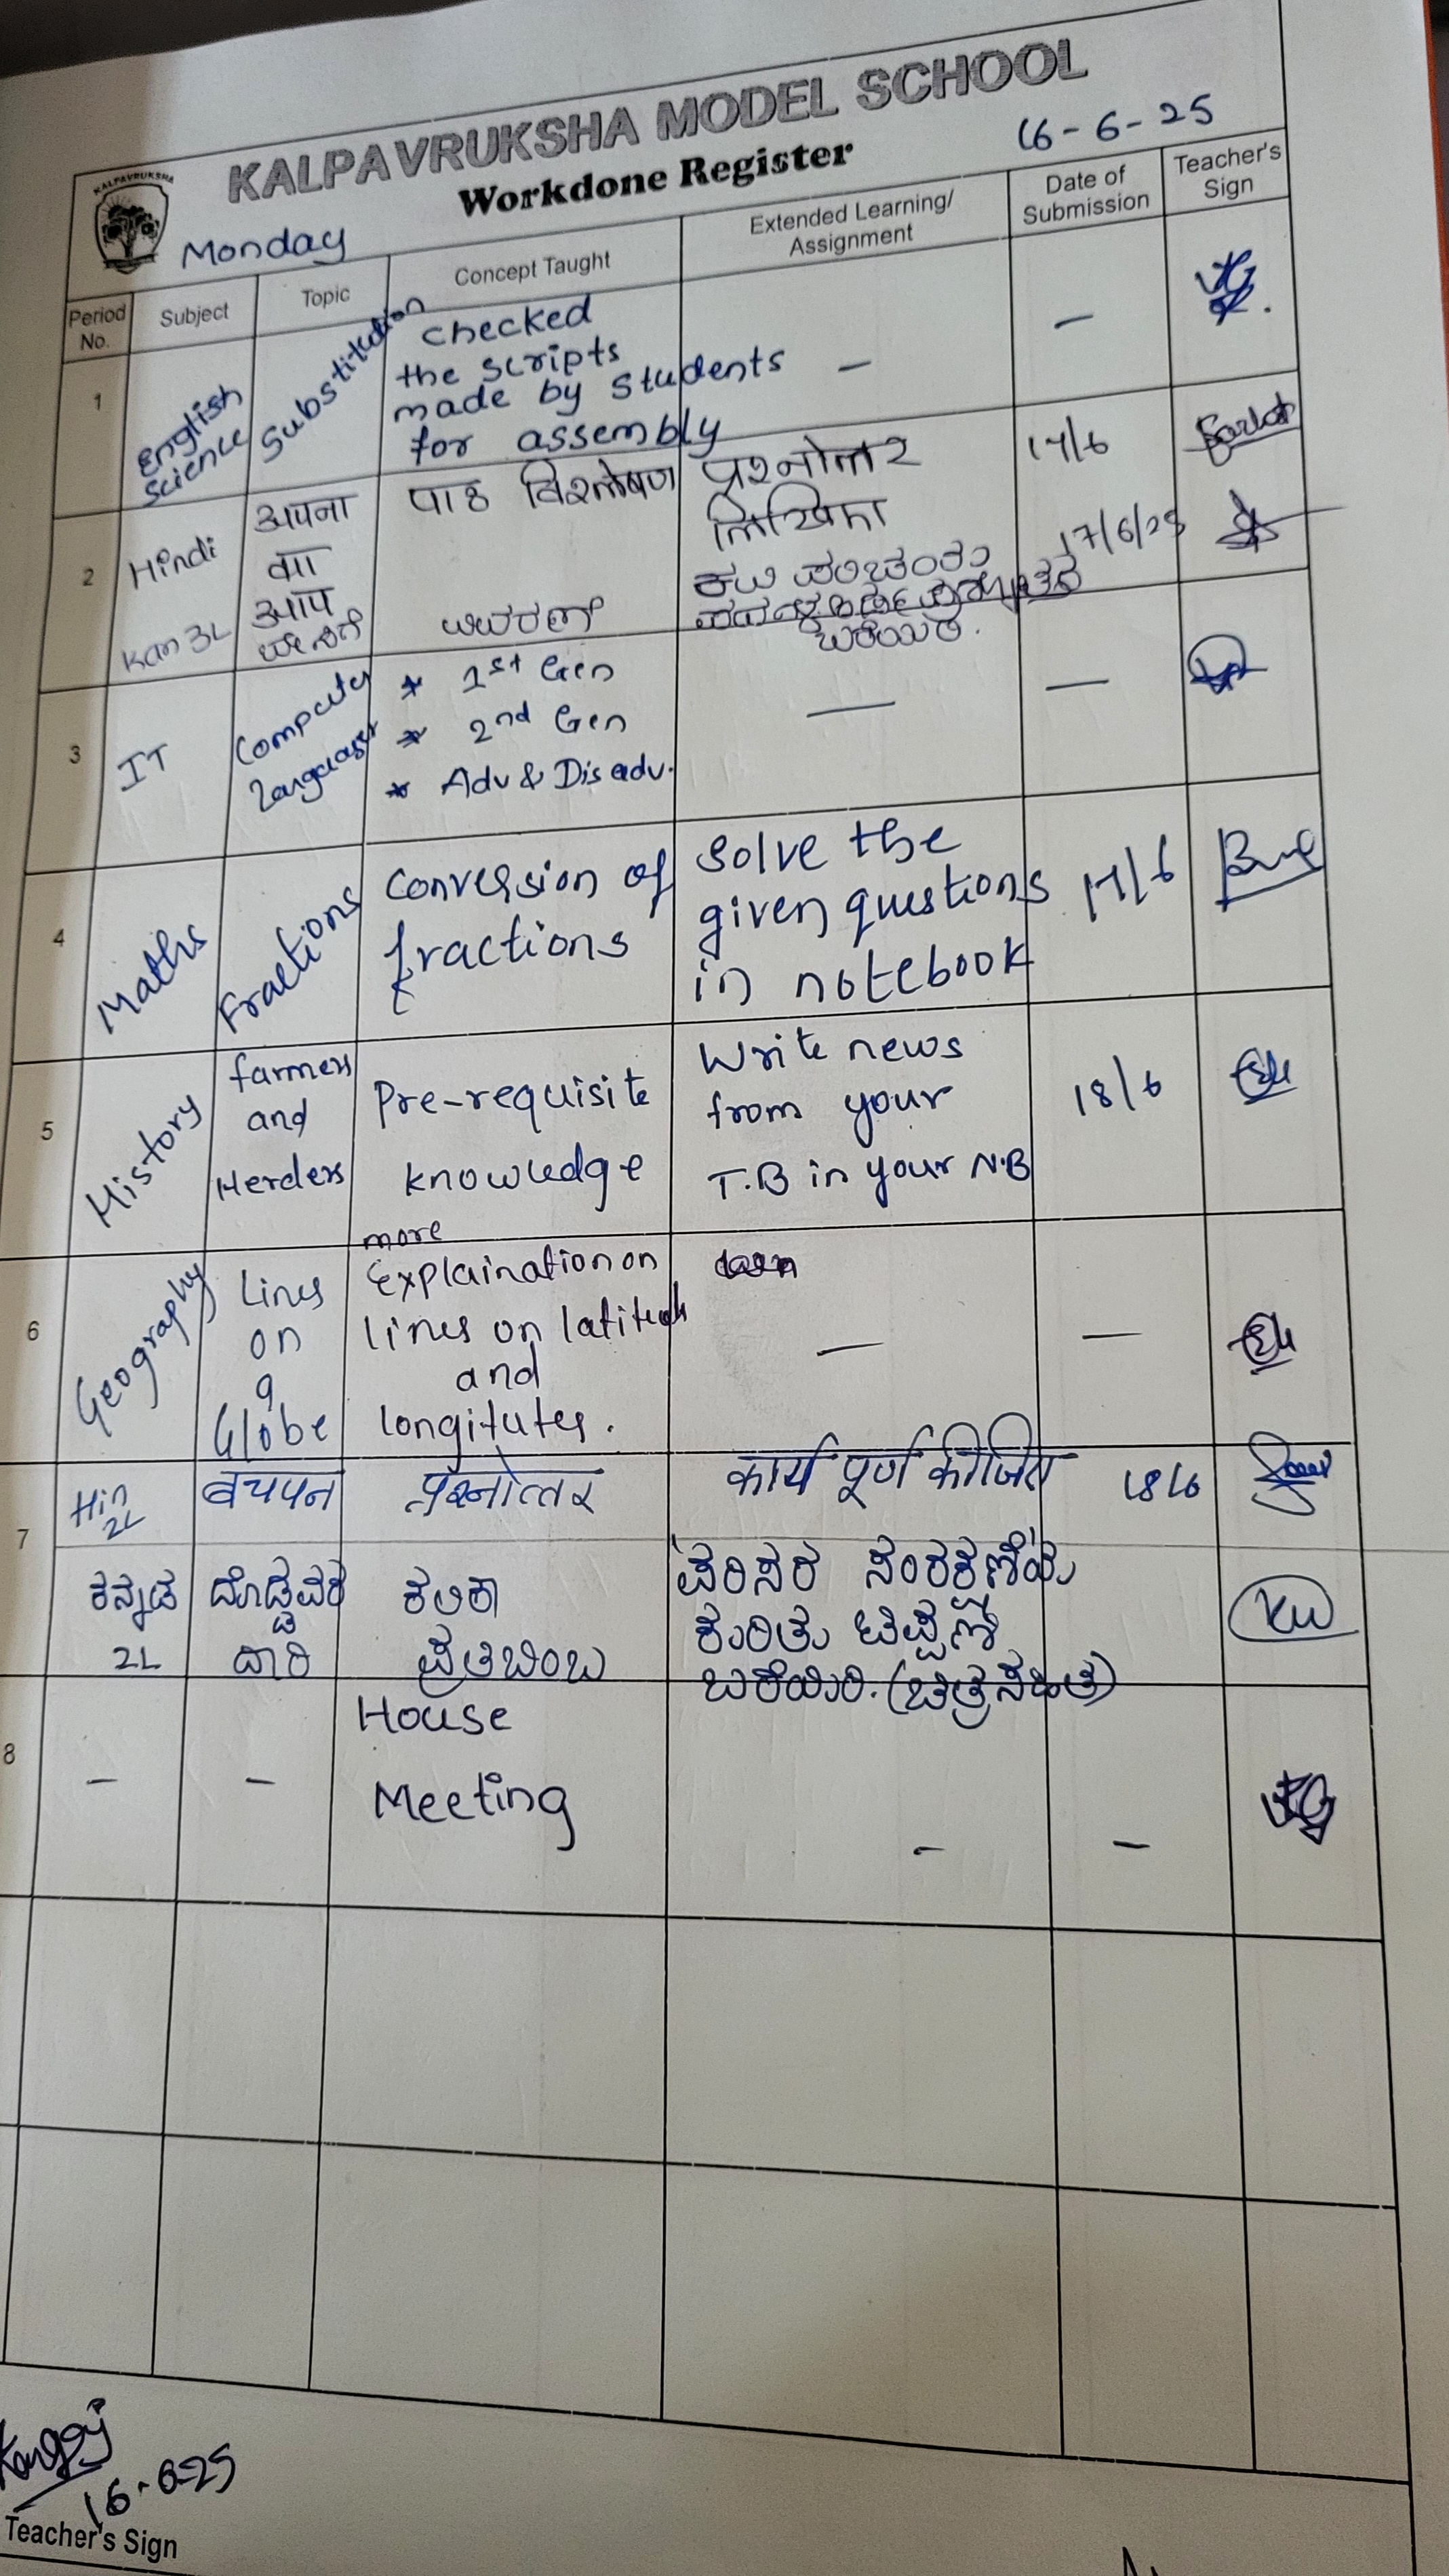 KALPAVRUKSHA MODEL SCHOOL
KALPAVRUKSHA
Workdone Register
16-6-25
Monday
Period No.
Subject
Topic
Concept Taught
Extended Learning/ Assignment
Date of Submission
Teacher's Sign
1
English
Science
Substitution
checked
the scripts
made by students
for assembly
—
—
2
Hindi
अपना
का
आप
पाठ विश्लेषण
प्रश्नोत्तर
लिखिए
17/6
Kan 3L
ಬರೆಯಿರಿ.
17/6/25
3
IT
Computer
Languages
* 1st Gen
* 2nd Gen
* Adv & Disadv.
—
—
4
Maths
Fractions
Conversion of
fractions
Solve the
given questions
in notebook
17/6
5
History
farmers
and
Herders
Pre-requisite
knowledge
Write news
from your
T.B in your N.B
18/6
6
Geography
Lines
on
a
Globe
more
Explaination on
lines on
and
longitutes.
—
—
7
Hin
2L
बचपन
प्रश्नोत्तर
कार्य पूर्ण कीजिए
18/6
ಕನ್ನಡ
2L
ದೊಡ್ಡವರ
ದಾರಿ
ಕಲಿಕಾ
ಪ್ರತಿಬಿಂಬ
ಪರಿಸರ ಸಂರಕ್ಷಣೆಯ
ಕುರಿತು ಟಿಪ್ಪಣಿ
ಬರೆಯಿರಿ. (ಚಿತ್ರಸಹಿತ)
8
—
—
House
Meeting
—
—
16-6-25
Teacher's Sign